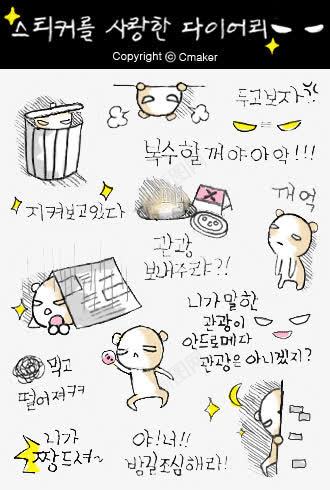 스티커를 사랑한 다이어리
Copyright ⓒ Cmaker
두고보자
복수할꺼야아악!!!
지켜보고있다
깨억
관광
보내주랴?!
니가말한
관광이
안드로메다
관광은 아니겠지?
먹고
떨어져ㅋㅋ
니가
짱드셔~
야!너!!
밤길조심해라!